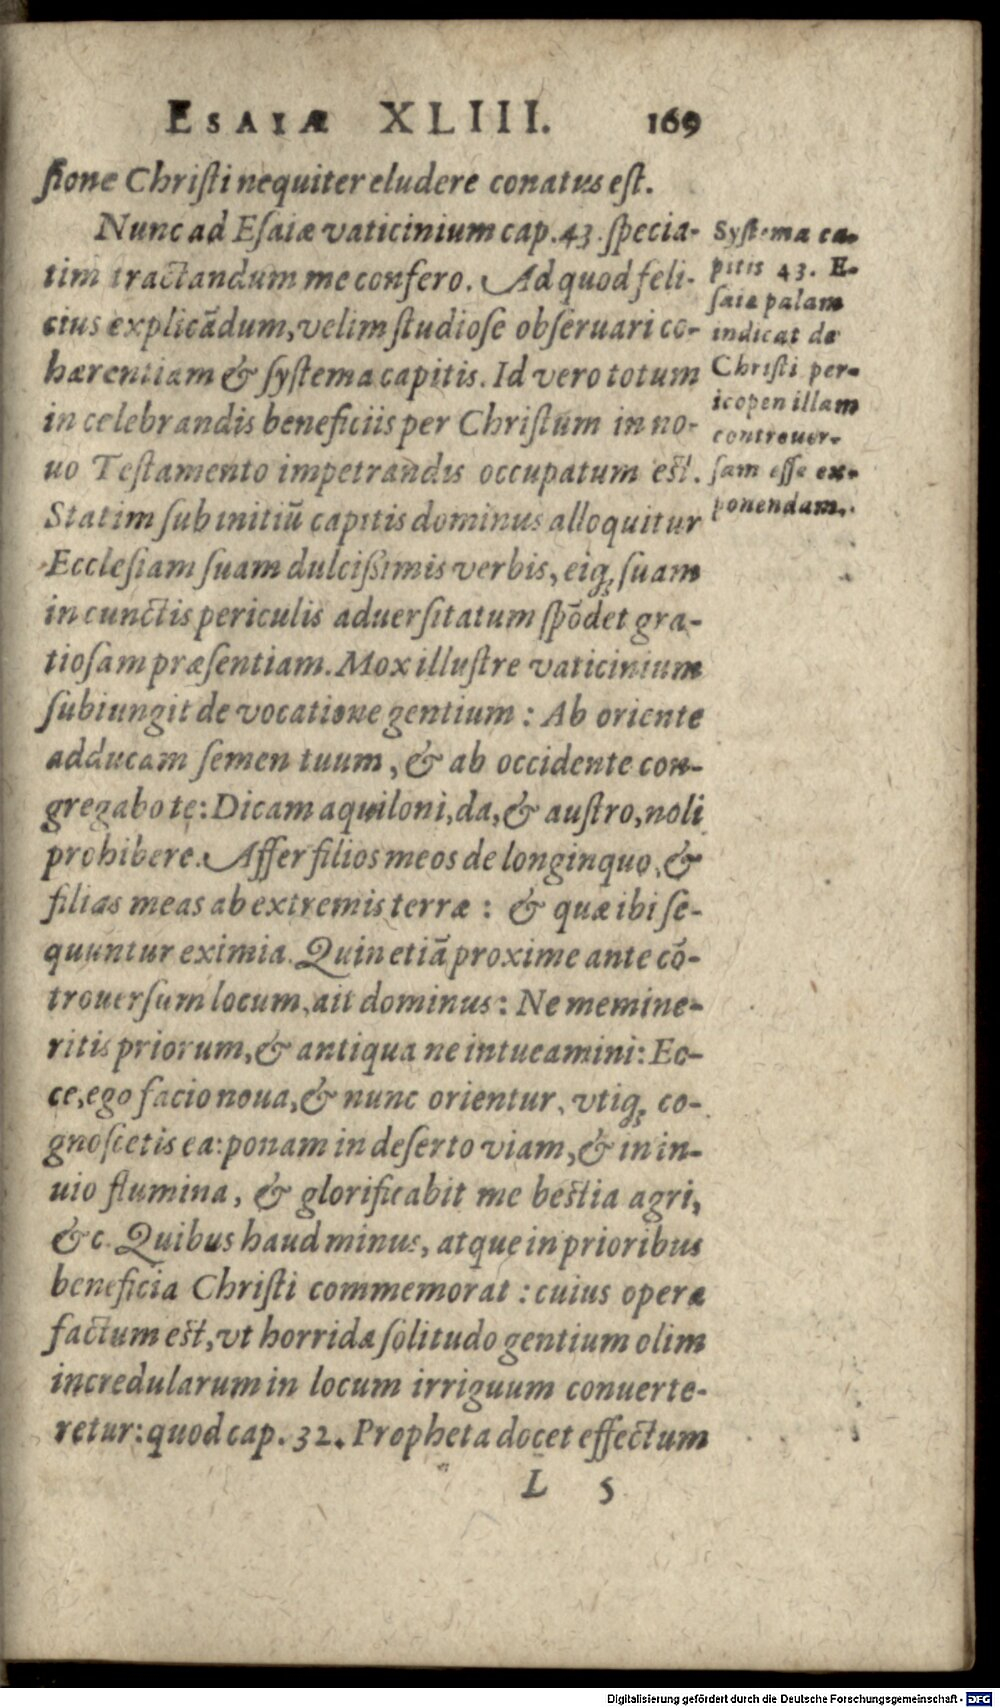 ESAIÆ XLIII. 169
ſione Chriſti nequiter eludere conatus eſt.
Nunc ad Eſaiæ vaticinium cap. 43. ſpecia-
tim tractandum me confero. Ad quod feli-
cius explicãdum, velim ſtudioſe obſeruari co-
hærentiam & ſyſtema capitis. Id vero totum
in celebrandis beneficiis per Chriſtum in no-
uo Teſtamento impetrandis occupatum eſt.
Statim ſub initiũ capitis dominus alloquitur
Eccleſiam ſuam dulciſſimis verbis, eiq; ſuam
in cunctis periculis aduerſitatum ſpõdet gra-
tioſam præſentiam. Mox illuſtre vaticinium
ſubiungit de vocatione gentium: Ab oriente
adducam ſemen tuum, & ab occidente con-
gregabo te: Dicam aquiloni, da, & auſtro, noli
prohibere. Affer filios meos de longinquo, &
filias meas ab extremis terræ: & quæ ibi ſe-
quuntur eximia. Quin etiã proxime ante cõ-
trouerſum locum, ait dominus: Ne memine-
ritis priorum, & antiqua ne intueamini: Ec-
ce, ego facio noua, & nunc orientur, vtiq; co-
gnoſcetis ea: ponam in deſerto viam, & in in-
uio flumina, & glorificabit me beſtia agri,
&c. Quibus haud minus, atque in prioribus
beneficia Chriſti commemorat: cuius opera
factum eſt, vt horrida ſolitudo gentium olim
incredularum in locum irriguum conuerte-
retur: quod cap. 32. Propheta docet effectum
L 5
Syſtema ca-
pitis 43. E-
ſaiæ palam
indicat de
Chriſti per-
icopen illam
controuer-
ſam eſſe ex-
ponendam.
Digitalisierung gefördert durch die Deutsche Forschungsgemeinschaft - DFG